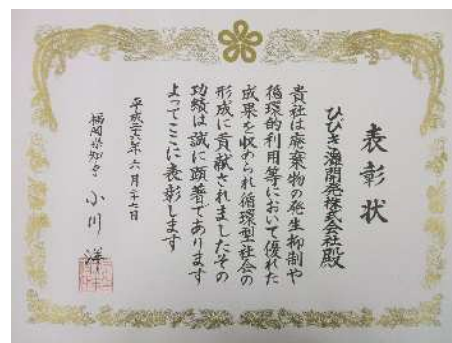 表彰状
ひびき灘開発株式会社殿
貴社は廃棄物の発生抑制や
循環的利用等において優れた
成果を収められ循環型社会の
形成に貢献されましたその
功績は誠に顕著であります
よってここに表彰します
平成二十六年六月二十七日
福岡県知事 小川洋